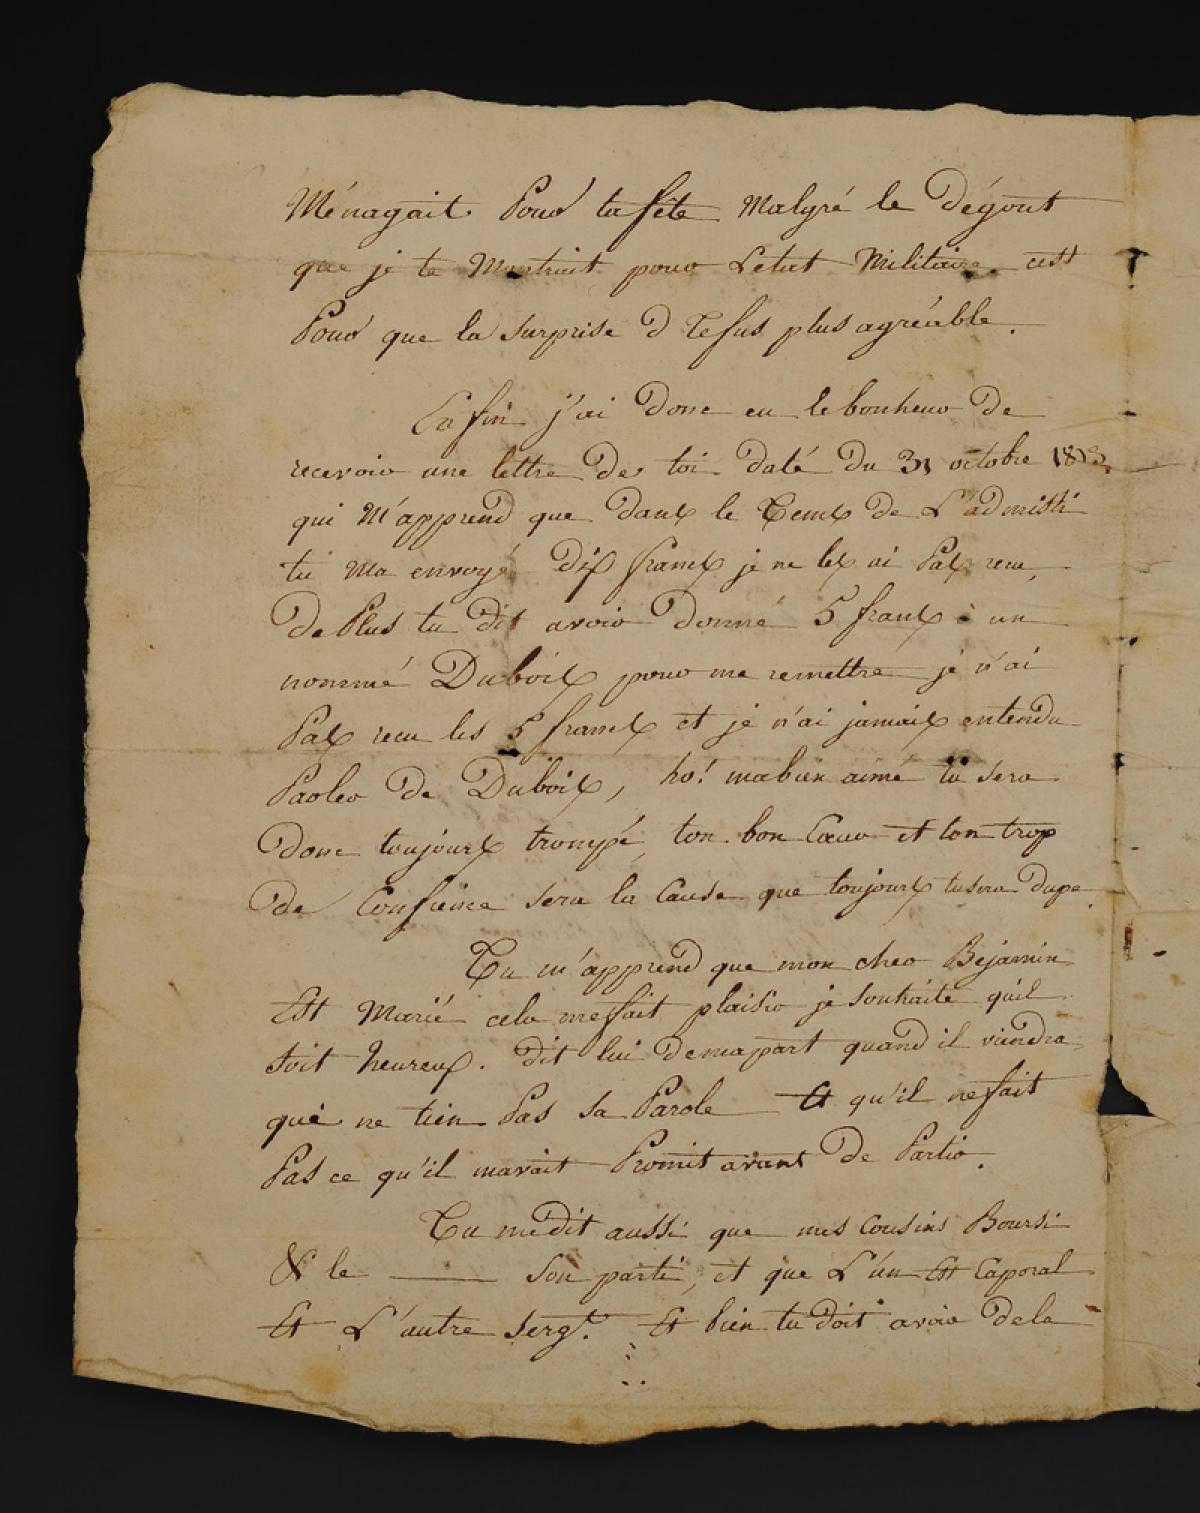 Ménagait Pour ta fête Malgré le Dégout
que je te Montrait pour Letat Militaire cest
Pour que la surprise D tefus plus agréable.
Enfin j'ai Donc eu le bonheur De
recevoir une lettre De toi Daté Du 31 octobre
qui M'apprend que Dans le Tems De L'admisti
tu Ma envoyé Dix francs je ne les ai Pas recu,
De Plus tu Dit avoir Donné 5 francs à un
nommé Dubois pour me remettre je n'ai
Pas recu les 5 francs et je n'ai jamais entendu
Parler De Dubois, ho! mabien aimé tu sera
Donc toujours trompé, ton bon Cœur et ton trop
De Confience sera la Cause que toujours tusera Dupe.
Tu m'apprend que mon cher Bejamin
Est Marié cela mefait plaisir je souhaite qu'il
soit heureux. Dit lui Demapart quand il viendra
que ne tien Pas sa Parole Et qu'il nefait
Pas ce qu'il mavait Promit avant De Partir.
Tu meDit aussi que mes Cousins Boursi
& le ——— Son parti, et que L'un Est Caporal
Et L'autre Sergt. Et bien tu Doit avoir Dela